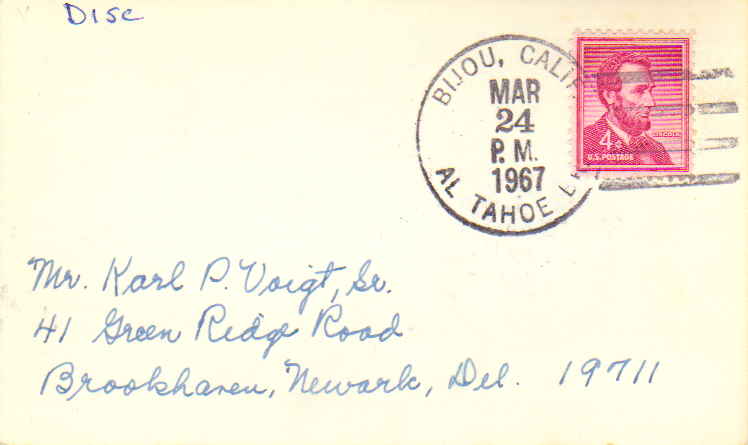 Disc
BIJOU, CALIF.
MAR
24
P. M.
1967
AL TAHOE
4¢
LINCOLN
U.S. POSTAGE
Mr. Karl P. Voigt, Sr.
41 Green Ridge Road
Brookhaven, Newark, Del. 19711